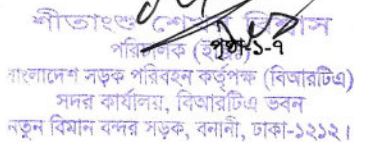 শীতাংশু শেখর বিশ্বাস
পরিচালক
পৃষ্ঠা-১-৭
বাংলাদেশ সড়ক পরিবহন কর্তৃপক্ষ (বিআরটিএ)
সদর কার্যালয়, বিআরটিএ ভবন
নতুন বিমান বন্দর সড়ক, বনানী, ঢাকা-১২১২।